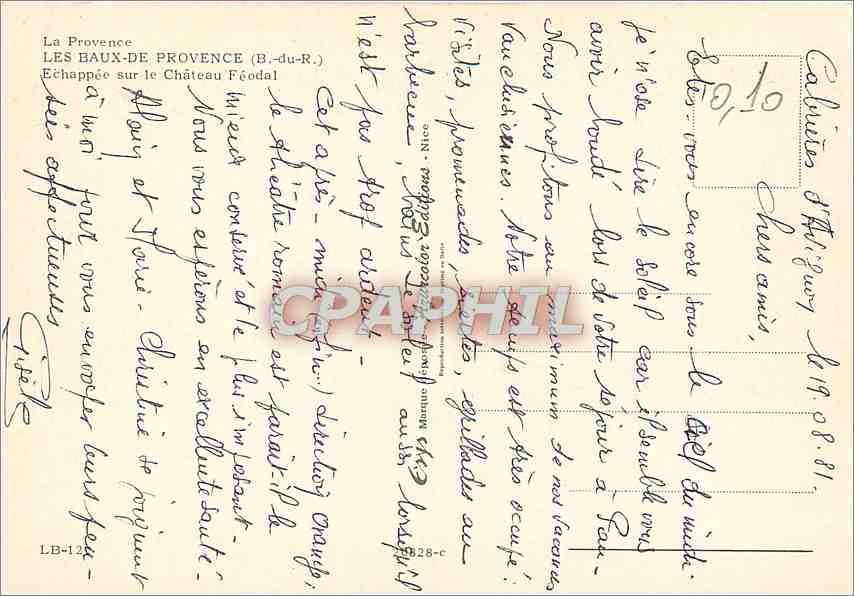 La Provence
LES BAUX-DE PROVENCE (B.-du-R.)
Echappée sur le Château Féodal
0,10
Cabrières d'Avignon, le 19.08.81.
Chers amis,
Etes-vous encore sous le ciel du midi
je n'ose dire le soleil car il semble vous
avoir boudé lors de votre séjour à
Nous profitons au maximum de nos vacances
Vauclusiennes. Notre temps est très occupé :
visites, promenades, siestes, grillades au
barbecue, le soleil aussi lorsqu'il
n'est pas trop ardent -
Cet après-midi (enfin...) direction Orange ;
le théâtre romain est paraît-il le
mieux conservé et le plus imposant -
Nous vous espérons en excellente santé -
Alain et Marie-Christine se joignent
à moi pour vous envoyer leurs pen-
sées affectueuses
Gisèle
Editions - Nice
LB-12
20828-c
CPAPHIL